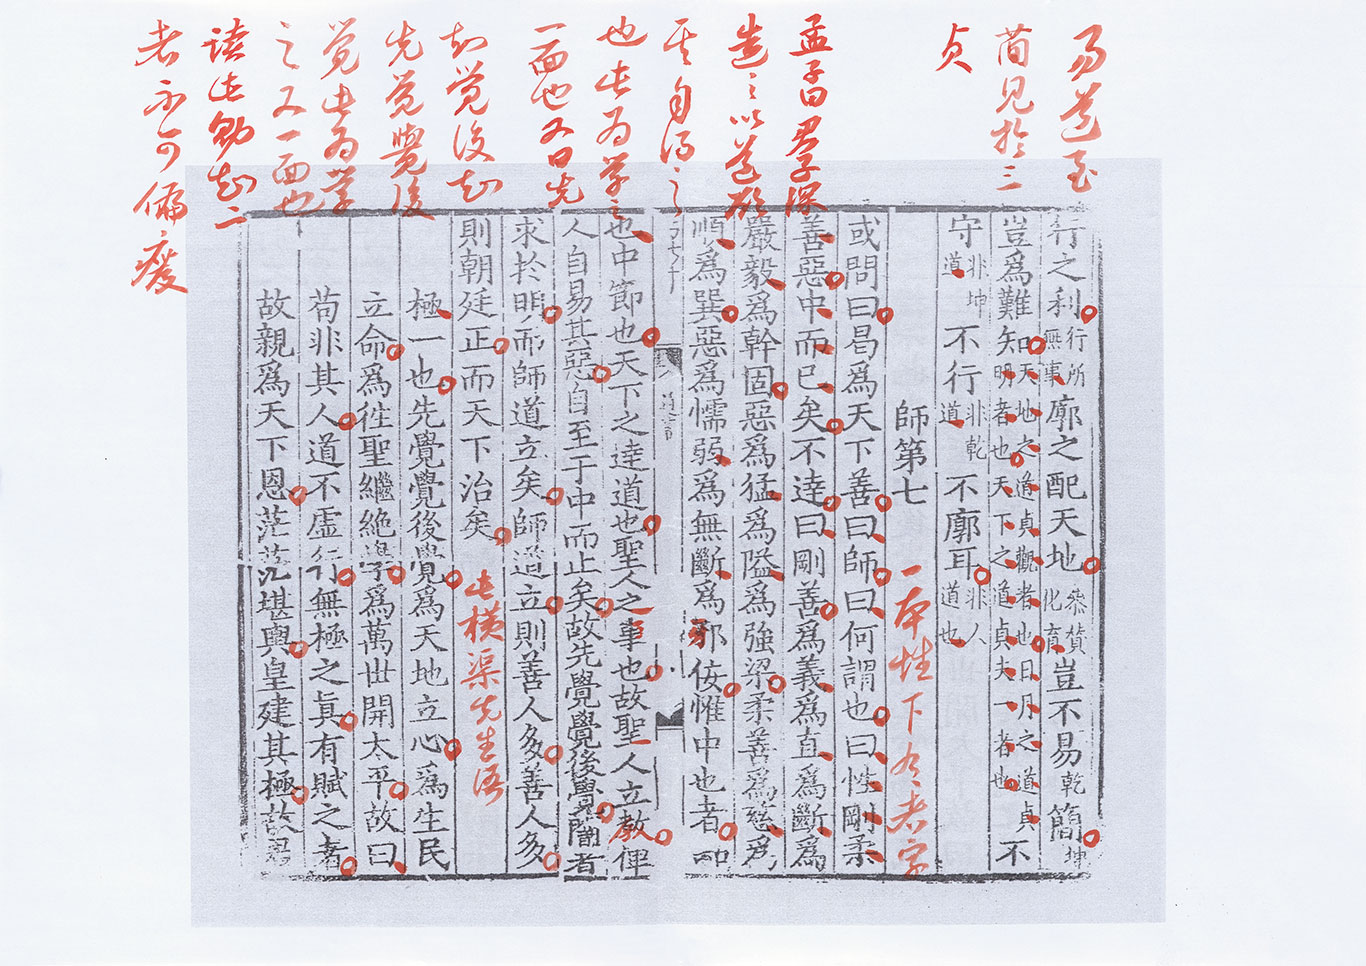 易道至
简见於三
贞
孟子曰君子深
造之以道欲
其自得之
也此为学之
一面也又曰先
知觉後知
先觉覺後
觉此为学
之又一面也
读此须知二
者不可偏廢
行之利行所無事廓之配天地參贊化育豈不易乾簡坤
豈爲難知知天地之道貞觀者也日月之道貞明者也天下之道貞夫一者也不
守非坤道不行非乾道不廓耳非人道也
師第七
一本性下有者字
或問曰曷爲天下善曰師曰何謂也曰性剛柔
善惡中而已矣不達曰剛善爲義爲直爲斷爲
嚴毅爲幹固惡爲猛爲隘爲強梁柔善爲慈爲
順爲巽惡爲懦弱爲無斷爲邪佞惟中也者和
也中節也天下之達道也聖人之事也故聖人立教俾
人自易其惡自至于中而止矣故先覺覺後覺闇者
求於明而師道立矣師道立則善人多善人多
則朝廷正而天下治矣
此横渠先生语
極一也先覺覺後覺爲天地立心爲生民
立命爲徃聖繼絶學爲萬世開太平故曰
苟非其人道不虛行無極之眞有賦之者
故親爲天下恩茫茫堪輿皇建其極故